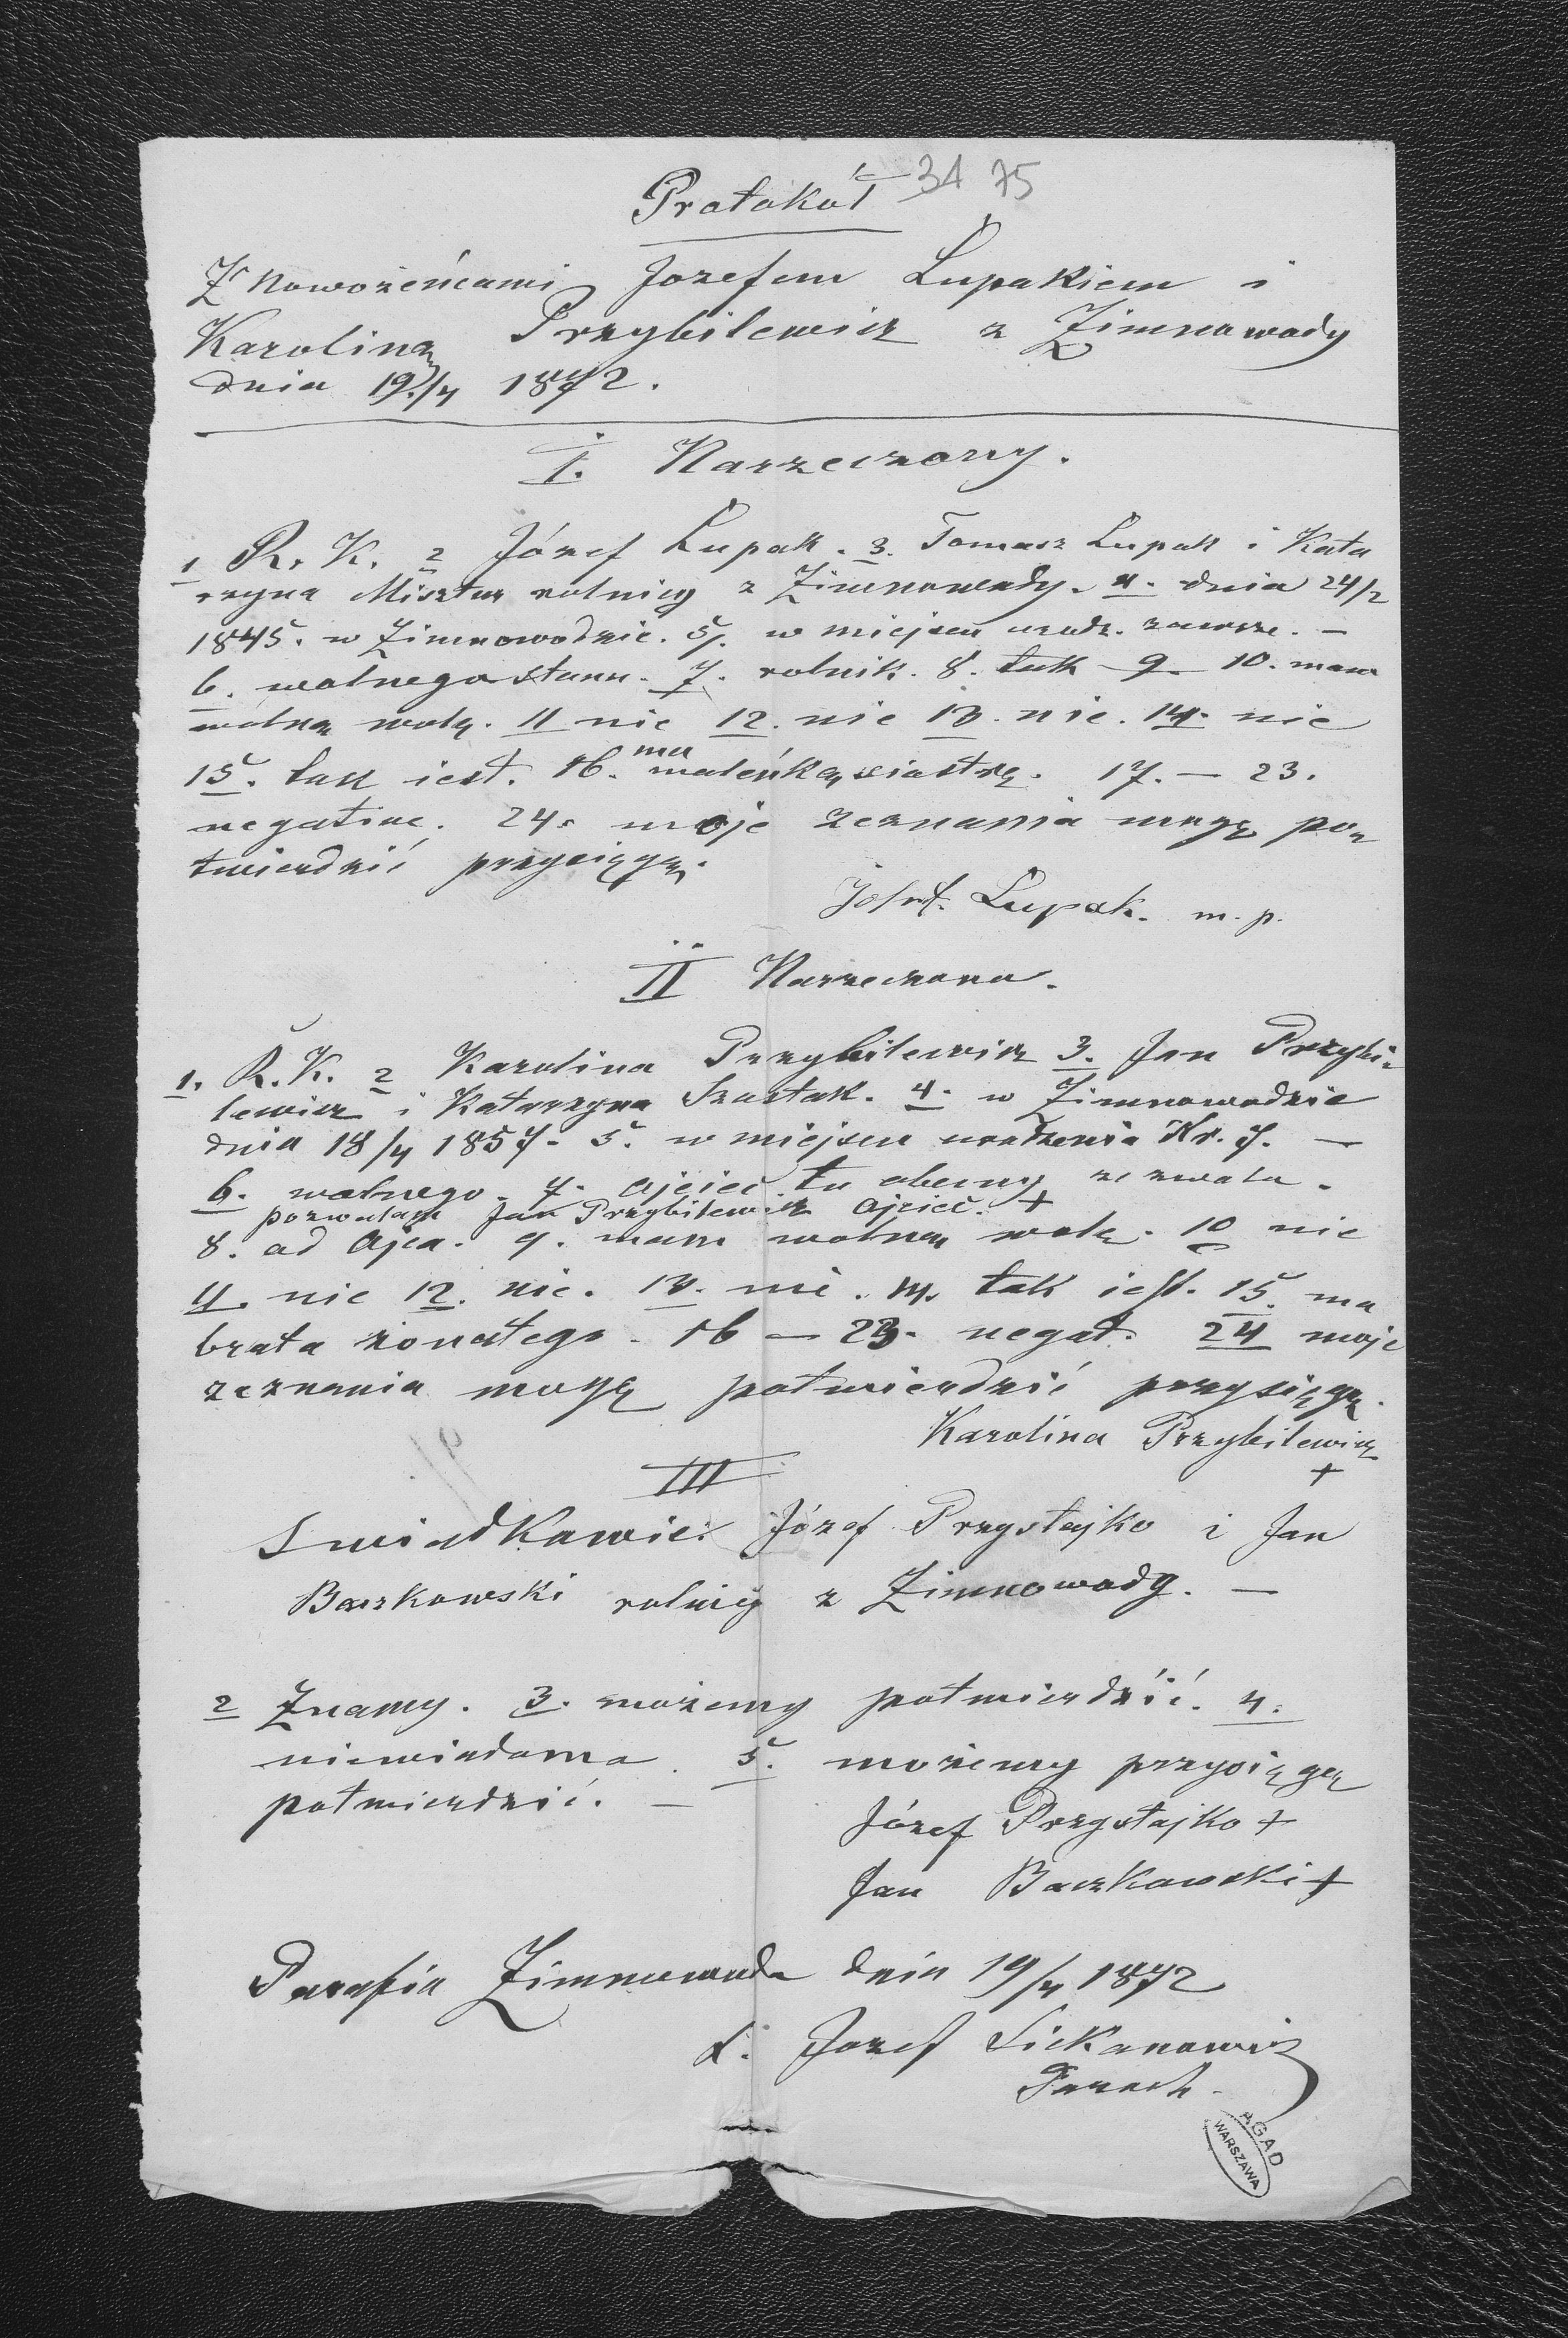 Protokół 34 75
Z Nowożeńcami Jozefem Łupakiem i
Karoliną Przybilewicz z Zimnowody
dnia 19./4 1872.
I. Narzeczony.
1 R. K. 2 Józef Łupak. 3. Tomasz Łupak i Kata
rzyna Misztur rolnicy z Zimnowody. 4. dnia 24/2
1845. w Zimnowodzie. 5. w miejscu urodz. zawsze. —
6. wolnego stanu. 7. rolnik. 8. tak 9 - 10. mam
wolną wolę. 11 nie 12. nie 13. nie. 14. nie
15. tak iest. 16. ma maleńką siostrę. 17. — 23.
negative. 24. moje zeznania mogę po=
twierdzić przysięgą.
Józef. Łupak. m. p.
II Narzeczona.
1. R. K. 2 Karolina Przybilewicz 3. Jan Przybi=
lewicz i Katarzyna Szostak. 4. w Zimnowodzie
dnia 18/4 1857. 5. w miejscu urodzenia Nr. 7. —
6. wolnego. 7. ojciec tu obecny zezwala.
pozwalam Jan Przybilewicz Ojciec. +
8. od Ojca. 9. mam wolną wolę. 10 nie
11. nie 12. nie. 13. nie. 14. tak iest. 15. ma
brata żonatego. 16 — 23. negat. 24 moje
zeznania mogę potwierdzić przysięgą.
Karolina Przybilewicz
+
III
Swiadkowie: Józef Przystajko i Jan
Baczkowski rolnicy z Zimnowody. —
2 Znamy. 3. możemy potwierdzić. 4.
niewiadoma. 5. możemy przysięgą
potwierdzić. —
Józef Przystajko +
Jan Baczkowski +
Parafia Zimnawoda dnia 19/4 1872
X. Jozef Sickanowicz
Paroch.
AGAD
WARSZAWA